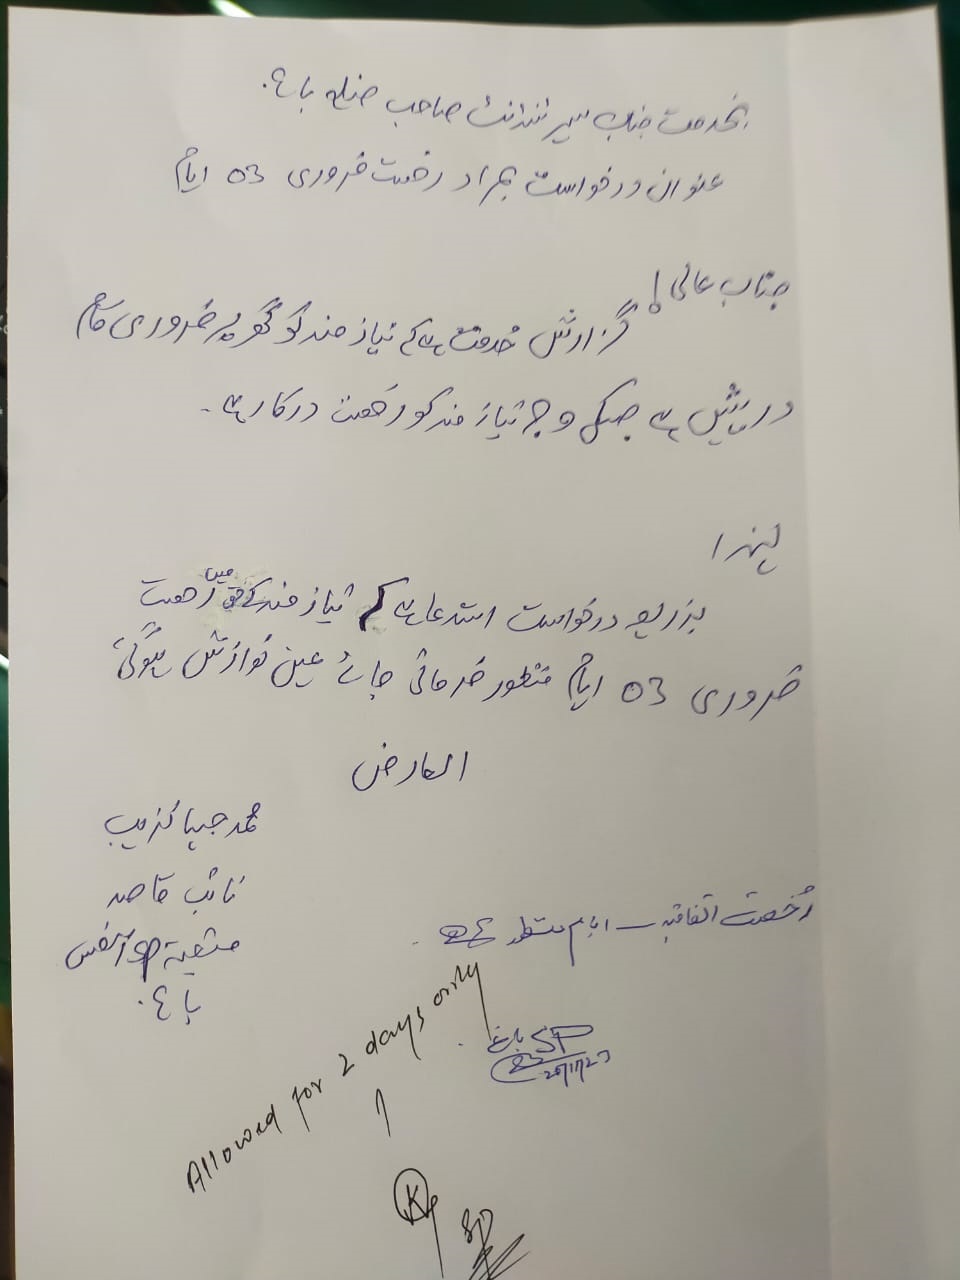 بخدمت جناب سپرنٹنڈنٹ صاحب ضلع باغ۔
عنوان درخواست بمراد رخصت ضروری 03 ایام
جناب عالی!
گزارش خدمت ہے کہ نیاز مند کو گھر پر ضروری کام
درپیش ہے جسکی وجہ نیاز مند کو رخصت درکار ہے۔
لہذا
بذریعہ درخواست استدعا ہے کہ نیاز مند کے حق میں رخصت
ضروری 03 ایام منظور فرمائی جائے عین نوازش ہوگی
العارض
محمد جہانزیب
نائب قاصد
متعینہ SP آفس
باغ۔
رخصت اتفاقیہ ایام منظور ہے۔
SP باغ
Allowed for 2 days only
SP